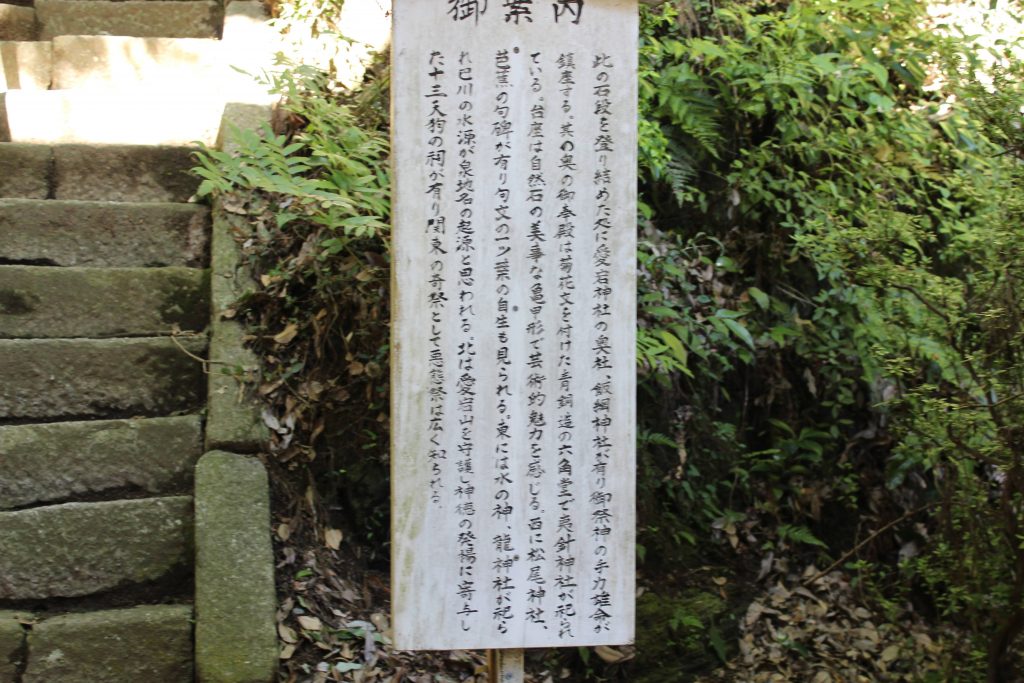 御案内
此の石段を登り結めた処に愛宕神社の奥社、飯綱神社が有り御祭神の手力雄命が
鎮座する。其の奥の御本殿は菊花文を付けた青銅造の六角堂で夷針神社が祀られ
ている。台座は自然石の美事な亀甲形で芸術的魅力を感じる。西に松尾神社、
芭蕉の句碑が有り句文の一ツ葉の自生も見られる。東には水の神、龍神社が祀ら
れ巳川の水源が泉地名の起源と思われる。北は愛宕山を守護し神徳の発揚に寄与し
た十三天狗の祠が有り関東の奇祭として悪態祭は広く知られる。